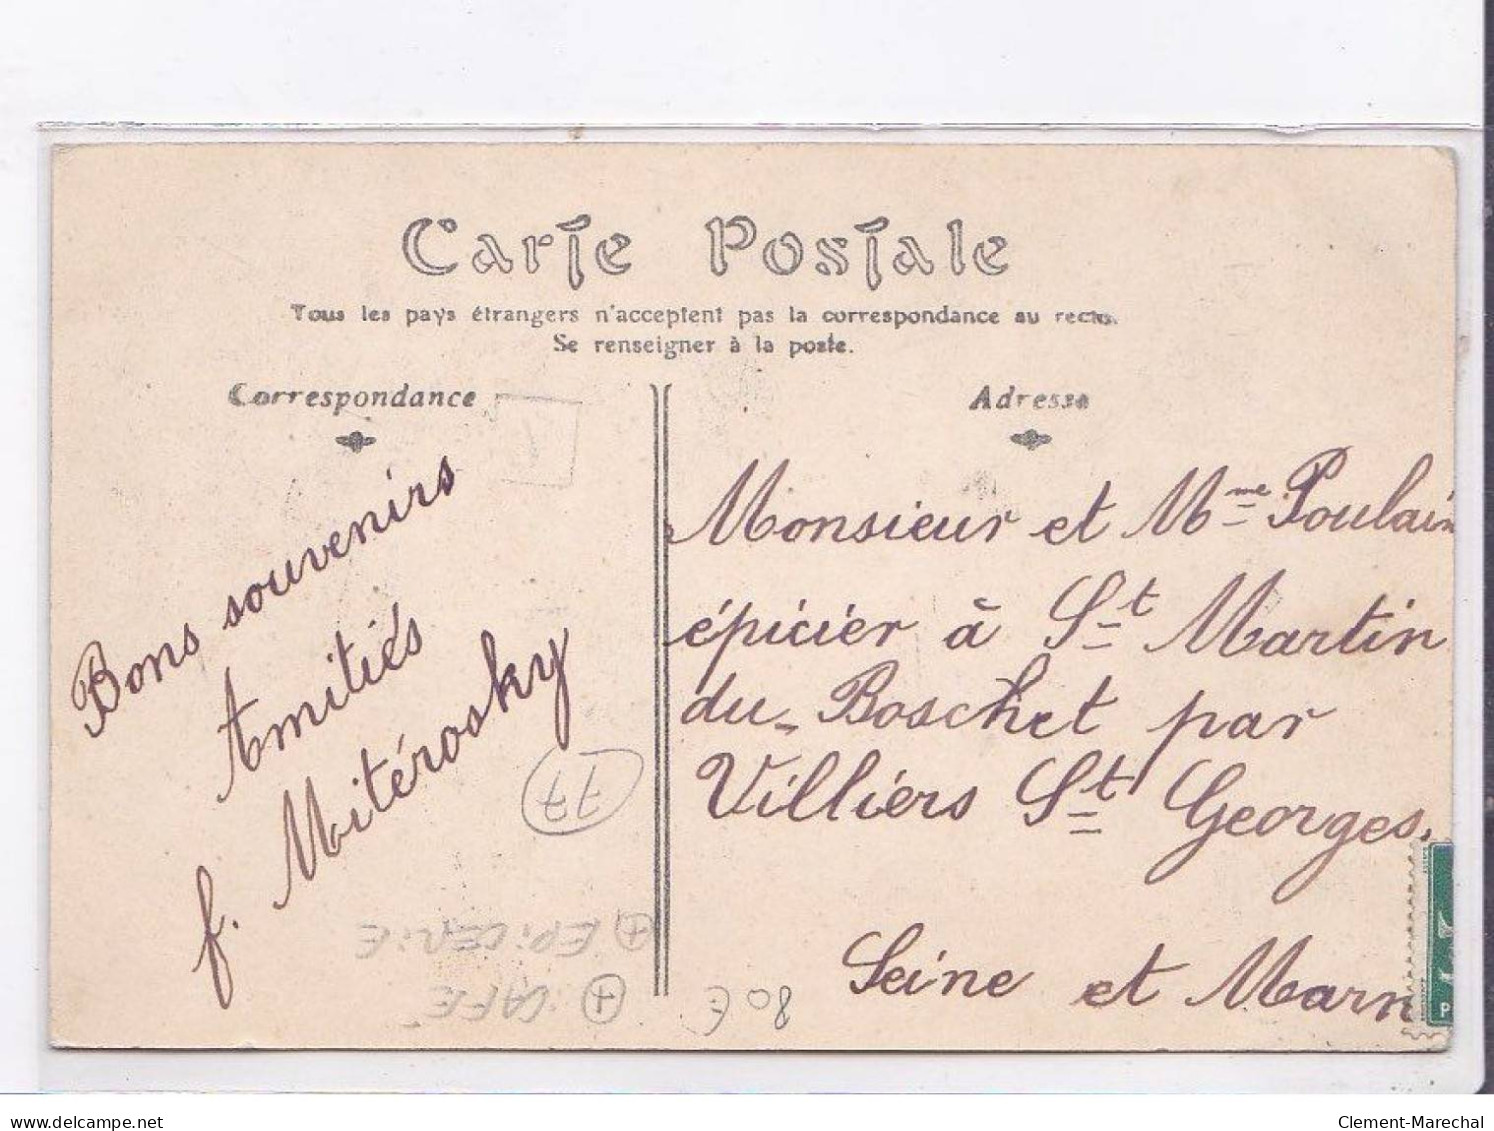 Carte Postale
Tous les pays étrangers n'acceptent pas la correspondance au recto.
Se renseigner à la poste.
Correspondance
Adresse
Bons souvenirs
Amitiés
f. Mitérosky
Monsieur et Mme Poulain
épicier à St Martin
du Boschet par
Villiers St Georges.
Seine et Marn
77
+ EPICERIE
+ CAFE
80 €
P
delcampe.net
Clement-Marechal